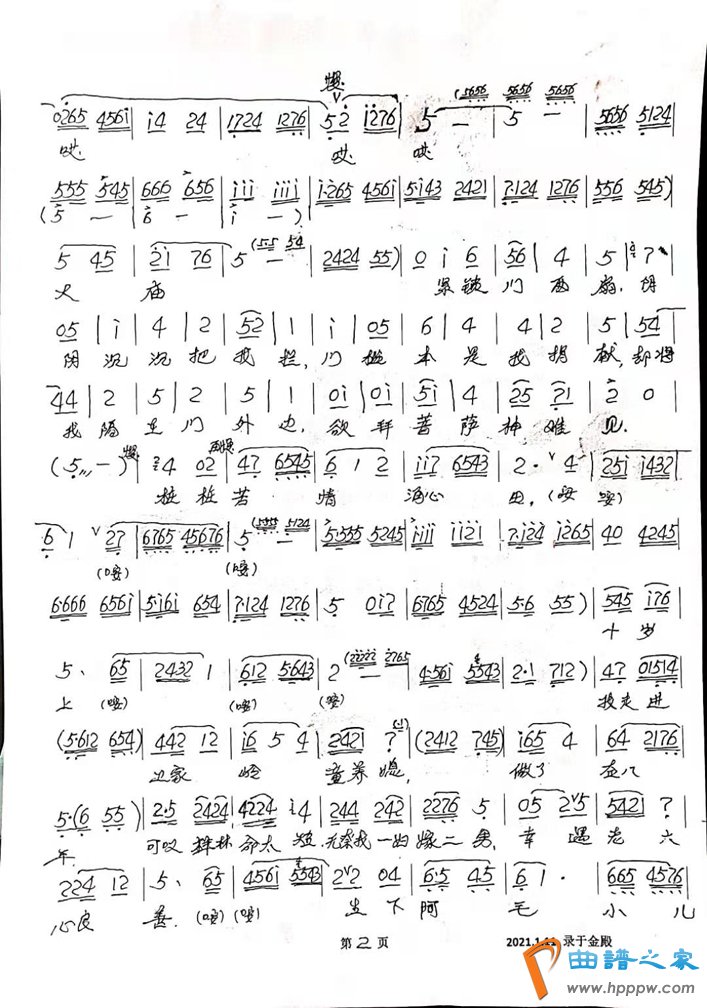 慢
(5656 5656 5656
0265 4561 | i4 24 | 1724 1276 | 5 2 1276 | 5 — | 5 — | 5656 5124 |
哎 哎 哎
555 545 | 666 656 | iii iiii | i·265 4561 | 5·i43 2421 | 7·124 1276 | 556 545) |
(5 — | 6 — | i —)
5 45 | 2i 76 | 5 — | 2424 55) | 0 i 6 | 56 | 4 | 5 | 7 |
火 庙 紧锁 门 两 扇, 阴
05 | i | 4 | 2 | 52 | 1 | i | 05 | 6 | 4 | 4 | 2 | 5 | 54 |
阴 沉 沉 把 我 拦, 门 槛 本 是 我 捐 献, 却将
44 | 2 | 5 | 2 | 5 | 1 | 0i | 0i | 5i | 4 | 25 | 71 | 2 0 |
我 隔 在 门 外 边, 欲 拜 菩 萨 神 难 见.
(5 — ) | 4 02 | 47 6545 | 6 1 2 | ii7 6543 | 2· 4 | 25i i432 |
桩 桩 苦 情 涌心 田, (哎 哎)
6 1 27 | 6765 45676 | 5 — | 5·555 5245 | iiii ii2i | 7·124 1265 | 40 4245 |
(哎) (哎)
6·666 656i | 5·i6i 654 | 7·124 1276 | 5 0i7 | 6765 4524 | 5·6 55) | 545 i76 |
十 岁
5、 65 | 2432 1 | 612 5643 | 2 — | 4·56i 5543 | 2·1 712) | 47 01514 |
上 (哎) (哎) (哎) 我走进
(5·612 654) | 442 12 | i6 5 4 | 2421 7 | (2412 745) | i65 4 | 64 2176 |
卫家 岭 童养媳, 做了 在八
5·(6 55) | 2·5 2424 | 4224 i4 | 244 242 | 2276 5 | 05 25 | 5421 7 |
年. 可叹 祥林 命太 短, 无奈我 一妇 嫁二 男, 幸 遇 老 六
224 12 | 5、 65 | 456i 5543 | 2 2 04 | 6·5 45 | 6 1· | 665 4576 |
心良 善. (哎) (哎) 生下 阿 毛 小 儿
第 2 页
2021.1.11 录于金殿
曲谱之家
www.hpppw.com